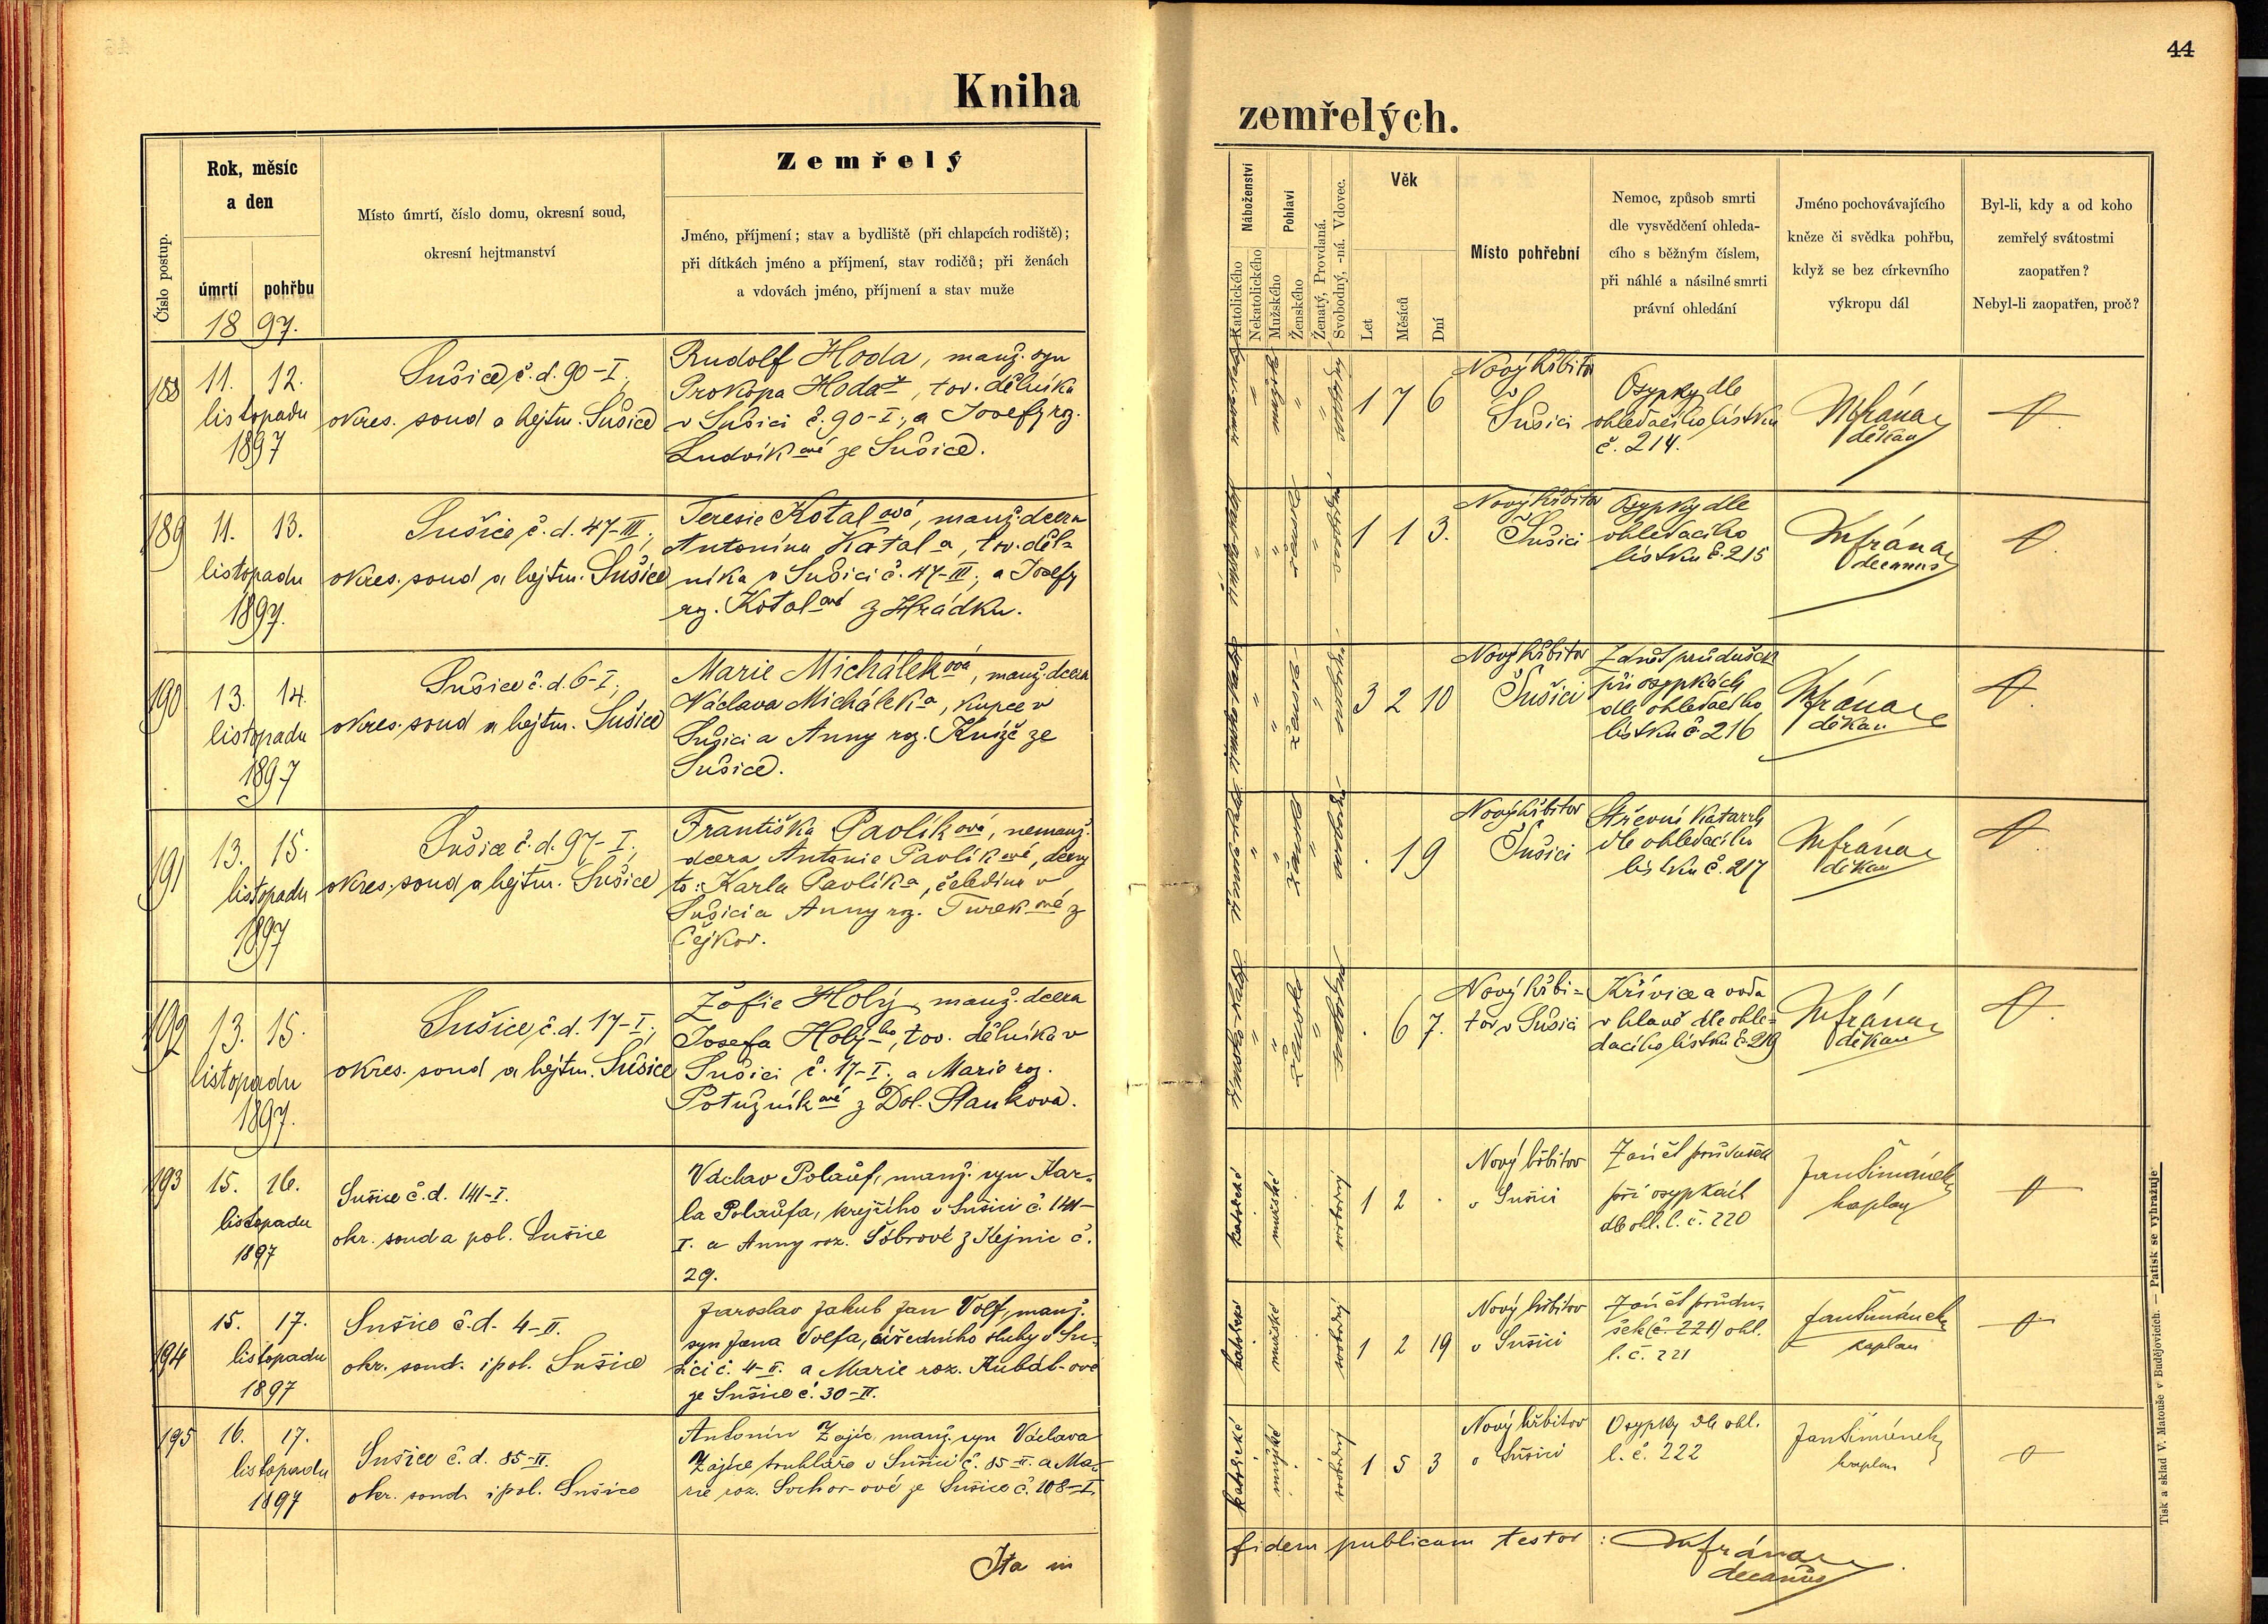 44
Kniha
zemřelých.
Číslo postup.
Rok, měsíc
a den
úmrtí
pohřbu
18 97.
Místo úmrtí, číslo domu, okresní soud,
okresní hejtmanství
Zemřelý
Jméno, příjmení; stav a bydliště (při chlapcích rodiště);
při dítkách jméno a příjmení, stav rodičů; při ženách
a vdovách jméno, příjmení a stav muže
Náboženství
Katolického
Nekatolického
Pohlaví
Mužského
Ženského
Ženatý, Provdaná.
Svobodný, -ná. Vdovec.
Věk
Let
Měsíců
Dní
Místo pohřební
Nemoc, způsob smrti
dle vysvědčení ohleda-
cího s běžným číslem,
při náhlé a násilné smrti
právní ohledání
Jméno pochovávajícího
kněze či svědka pohřbu,
když se bez církevního
výkropu dál
Byl-li, kdy a od koho
zemřelý svátostmi
zaopatřen?
Nebyl-li zaopatřen, proč?
188
11. 12.
listopadu
1897
Sušice, č. d. 90-I;
okres. soud a hejtm. Sušice
Rudolf Hoda, manž. syn
Prokopa Hoda-, tov. dělníka
v Sušici č. 90-I; a Josefy roz.
Ludvíkové ze Sušice.
" mužské
" "
1 7 6
Nový hřbitov
v
Sušici
Osypky dle
ohledacího lístku
č. 214.
děkan
189
11. 13.
listopadu
1897.
Sušice, č. d. 47-III;
okres. soud a hejtm. Sušice
Teresie Kotalová, manž. dcera
Antonína Kotala, tov. děl-
níka v Sušici č. 47-III; a Josefy
roz. Kotalové z Hrádku.
" "
ženské "
1 1 3.
Nový hřbitov
v Sušici
Osypky dle
ohledacího
lístku č. 215
decanus
190
13. 14.
listopadu
1897
Sušice č. d. 6-I;
okres. soud a hejtm. Sušice
Marie Michálková, manž. dcera
Václava Michálka, kupce v
Sušici a Anny roz. Kníže ze
Sušice.
" "
ženské "
3 2 10
Nový hřbitov
v Sušici
Zánět průdušek
při osypkách
dle ohledacího
lístku č. 216
děkan
191
13. 15.
listopadu
1897
Sušice č. d. 97-I;
okres. soud a hejtm. Sušice
Františka Pavlíková, nemanž.
dcera Antonie Pavlíkové, dcery
to: Karla Pavlíka, čeledína v
Sušici a Anny roz. Turekové z
Čejkov.
" "
ženské svobodná
. 1 9
Nový hřbitov
v Sušici
Střevní katarrh
dle ohledacího
lístku č. 217
děkan
192
13. 15.
listopadu
1897.
Sušice, č. d. 17-I;
okres. soud a hejtm. Sušice
Žofie Holý, manž. dcera
Josefa Holýho, tov. dělníka v
Sušici č. 17-I; a Marie roz.
Potužníkové z Dol. Staňkova.
" "
ženské " svobodná
. 6 7.
Nový hřbi-
tov v Sušici
Křivice a voda
v hlavě dle ohle-
dacího lístku č. 219
děkan
193
15. 16.
listopadu
1897
Sušice č. d. 141-I.
okr. soud a pol. Sušice
Václav Polauf, manž. syn Kar-
la Polaufa, krejčího v Sušici č. 141-
I. a Anny roz. Šóbrové z Kejnic č.
29.
katolické mužské svobodný
1 2 .
Nový hřbitov
v Sušici
Zánět průdušek
při osypkách
dle ohl. l. č. 220
Jan Šimánek
kaplan
194
15. 17.
listopadu
1897
Sušice č. d. 4-II.
okr. soud. i pol. Sušice
Jaroslav Jakub Jan Volf, manž.
syn Jana Volfa, úředního sluhy v Su-
šici č. 4-II. a Marie roz. Kubát-ové
ze Sušice č. 30-II.
katolické mužské svobodný
1 2 19
Nový hřbitov
v Sušici
Zánět průdu-
šek (č. 221) ohl.
l. č. 221
Jan Šimánek
kaplan
195
16. 17.
listopadu
1897
Sušice č. d. 85-II.
okr. soud i pol. Sušice
Antonín Zajíc, manž. syn Václava
Zajíce truhláře v Sušici č. 85-II. a Ma-
rie roz. Sochor-ové ze Sušice č. 108-I.
katolické mužské svobodný
1 5 3
Nový hřbitov
v Sušici
Osypky dle ohl.
l. č. 222
Jan Šimánek
kaplan
Ita in
fidem publicam testor :
decanus
Tisk a sklad V. Matouše v Budějovicích. — Patisk se vyhražuje